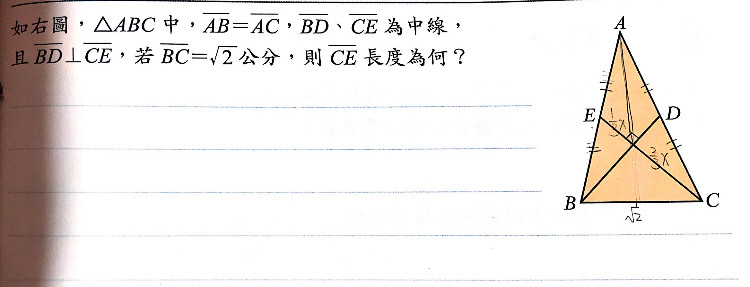 如右圖，△ABC 中，AB＝AC，BD、CE 為中線，
且 BD⊥CE，若 BC＝√2 公分，則 CE 長度為何？
A
E
D
1/3 x
2/3 x
B
C
√2